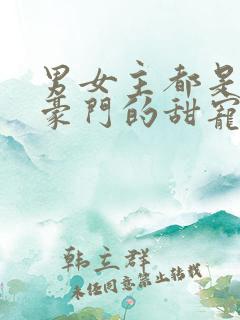 男女主都是
豪門的甜寵
韩立群
未经同意禁止转载